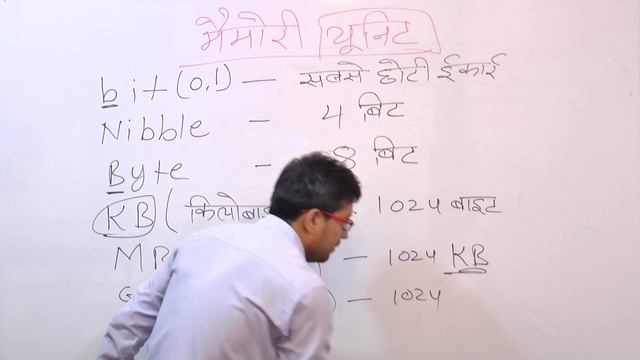 मैमोरी यूनिट
bit (0,1) — सबसे छोटी ईकाई
Nibble - 4 बिट
Byte - 8 बिट
KB (किलोबा 1024 बाइट
M ) - 1024 KB
G ) - 1024